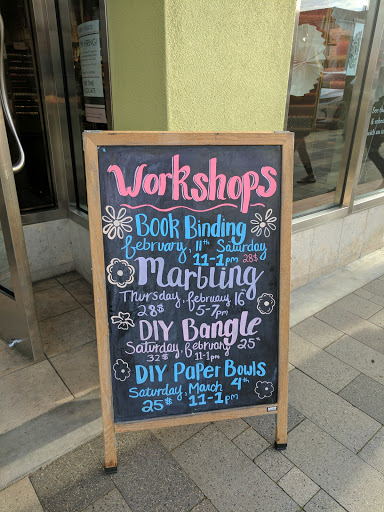 Workshops
Book Binding
february, 11th Saturday
11-1pm 28$
Marbling
Thursday, february, 16
28$ 5-7pm
DIY Bangle
Saturday, february 25th
32$ 11-1pm
DIY Paper Bowls
Saturday, March 4th
25$ 11-1pm